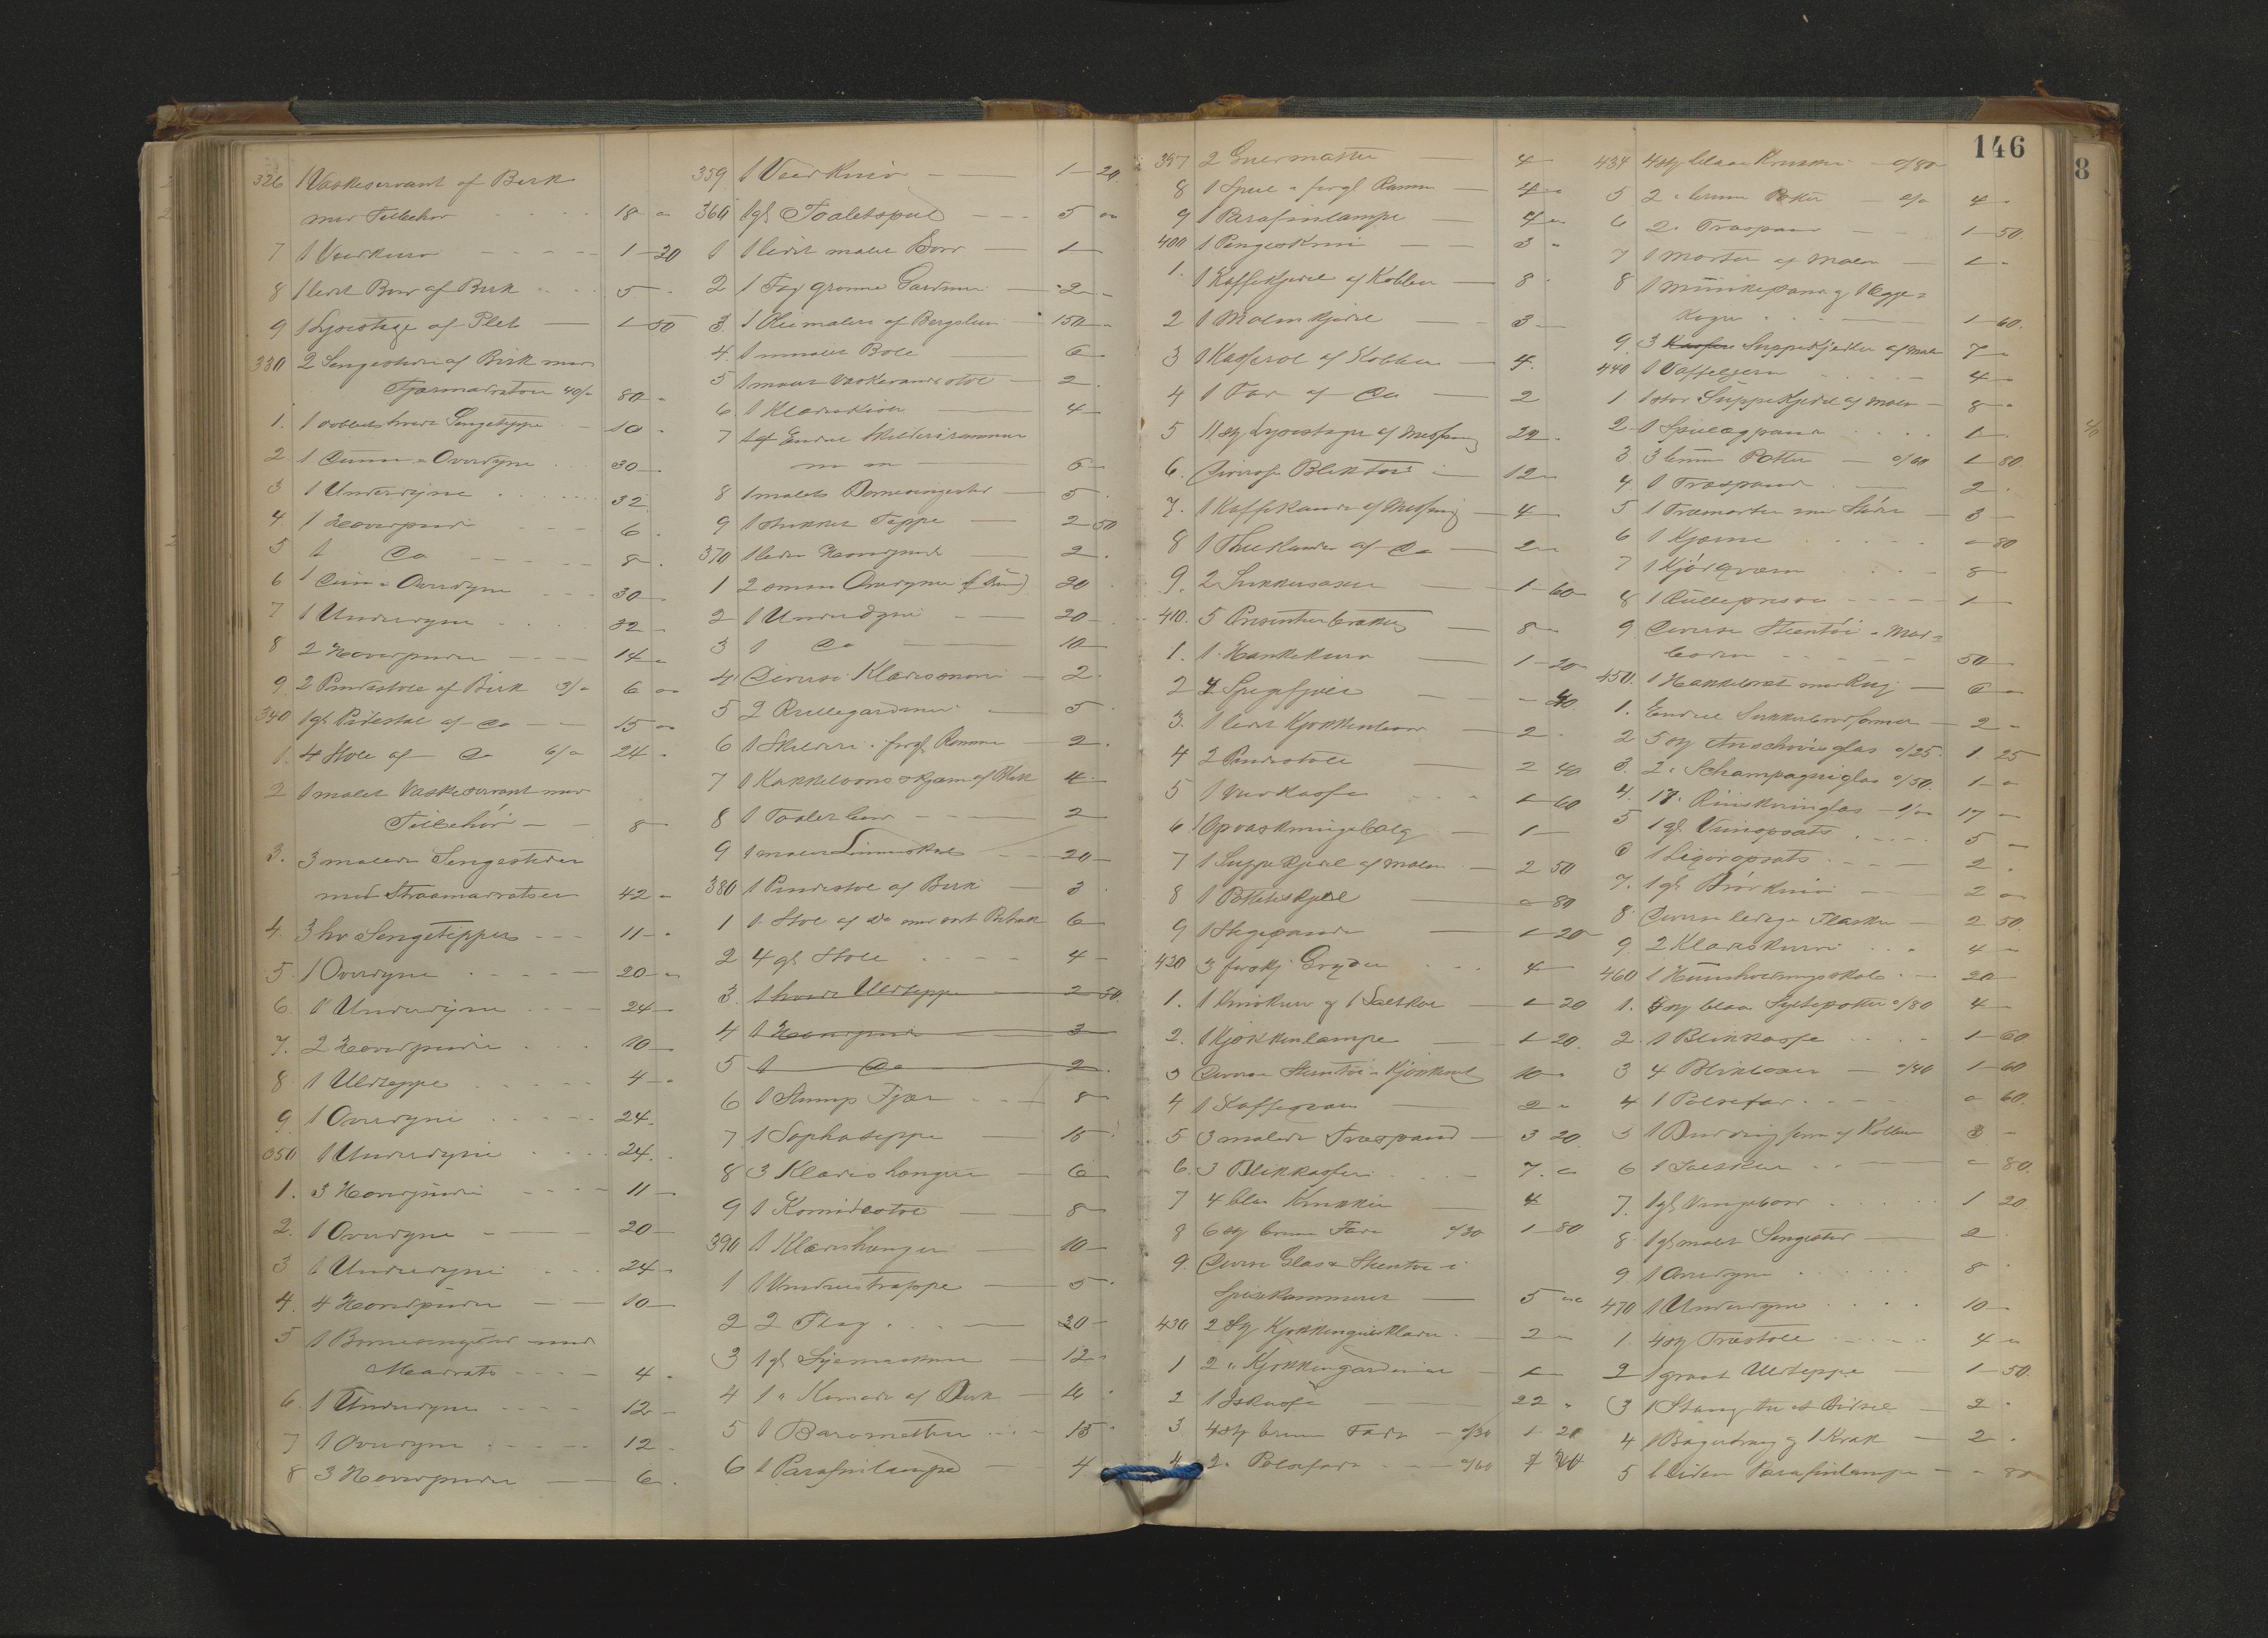 326 1 Vaskeservant af Birk
med Tilbehør 18 -
7 1 Vedkurv 1 20
8 1 lidet Bord af Birk 5 -
9 1 Lysestage af Plet 1 50
330 2 Sengesteder af Birk med
Fjærmadratser 40/- 80 -
1. 1 dobbelt hvidt Sengeteppe 10 -
2 1 Duun-Overdyne 30 -
3 1 Underdyne 32
4. 1 Hovedpude 6.
5 1 Do 8.
6 1 Duun-Overdyne 30 -
7 1 Underdyne 32 -
8 2 Hovedpuder 14 -
9. 2 Pindestole af Birk 3/- 6 -
340 1 gl. af Do 15 -
1. 4 Stole af Do 6/- 24 -
2 1 malet Vaskeservant med
Tilbehör 8 -
3. 3 malede Sengesteder
med Straamadratser 42 -
4. 3 hv Sengetepper 11 -
5. 1 Overdyne 20 -
6. 1 Underdyne 24 -
7. 2 Hovedpuder 10 -
8 1 Uldteppe 4 -
9. 1 Overdyne 24.
350 1 Underdyne 24.
1. 3 Hovedpuder 11 -
2. 1 Overdyne 20 -
3 1 Underdyne 24 -
4. 4 Hovedpuder 10 -
5 1 Børneseng med
Madrats 4 -
6. 1 Underdyne 12 -
7 1 Overdyne 12 -
8 3 Hovedpuder 6.
359 1 Vedkurv 1 20.
360 1 gl. Toiletspeil 5 -
1 1 lidet malet Bord 1 -
2 1 Fag grønne Gardiner 2 -
3. 1 Oliemaleri af Bergslien 150 -
4. 1 malet Bord 6 -
5 1 malet 2.
6. 1 Klædeskab 4 -
7 14 Endel Skilderirammer
m m 6 -
8 1 malet Børneseng 5.
9 1 strikket Teppe 2 50
370 1 liden Hovedpude 2.
1 2 smaa Overdyner (Dun) 20
2 1 Underdyne 20 -
3 1 Do 10 -
4 Diverse 2.
5 2 Rullegardiner 5 -
6 1 Skilderi i forgl. Ramme 2.
7 1 Kakkelovnsskjærm af Blik 4 -
8 1 Toiletbord 2
9 1 malet Linnedskab 20 -
380 1 Pindestol af Birk 3.
1 1 Stol af Do med sort Betræk 6 -
2 4 gl Stole 4 -
3. 1 hvidt Uldteppe 2 50.
4 1 Hovedpude 3
5 1 Do 2.
6 1 Stump 8 -
7 1 Sophateppe 15
8 3 Klædeshænger 6 -
9 1 8 -
390 1 Klædeshænger 10 -
1 1 Vinduestrappe 5 -
2 2 Flag 30 -
3 1 gl. Symaskine 12 -
4 1 " Komode af Birk 16
5 1 Barometer 15 -
6 1 Parafinlampe 4
397 2 4 -
8 1 Speil i forgl Ramme 4 -
9 1 Parafinlampe 4 -
400 1 Pengeskrin 3 -
1. 1 Kaffekjedel af Kobber 8 -
2 1 Malmkjedel 3 -
3 1 Kasserol af Kobber 4.
4 1 Fad af Do 2
5 11 st Lysestager af Messing 22 -
6. Diverse Bliktøi 12 -
7. 1 Kaffekande af Messing 4 -
8 1 af Do 2 -
9. 2 Sukkersaxer 1 60
410. 5 Presenterbrætter 8 -
1. 1 Hankekurv 1 20
2 40
3. 1 lidet Kjøkkenbord 2 -
4 2 Pindestole 2 40
5 1 Vedkasse 1 60
6 1 Opvaskningsbalje 1 -
7 1 Suppekjedel af Malm 2 50
8 1 Potetkjedel - 80
9 1 Stegepande 1 20
420 3 forskj. Gryder 4
1. 1 Knivkurv og 1 Saltkar 1 20
2. 1 Kjøkkenlampe 1 20.
3 Diverse Stentøi i Kjøkkenet 10 -
4 1 Kaffekværn 2 -
5 3 malede Træspand 3 20.
6. 3 Blikkasser 7. -
7 4 blaa Krukker 4
8 6 st brune Fade a/30 1 80
9. Diverse Glas & Stentøi i
Spisekammeret 5 -
430 2 Kjøkkengardiner 2 -
1 2 " Kjøkkengardiner 1 -
2 1 Iskasse 22 -
3 4 st brune Fade a/30 1 20
4 2 " Polsefade a/60
146
434 4 st blaa Krukker a/80
5 2 " brune Potter 4 -
6 2 " Træspand 1 50.
7 1 Morter af Malm 1 -
8 1 Munkepande & 1 Egge=
koger 1 60.
9. 3 Suppekjedler af Malm 7 -
440 1 Vaffeljern 4 -
1 1 stor Suppekjedel af Malm 8 -
2 1 Speilægpande 1 -
3. 3 brune Potter a/60 1 80.
4. 1 Træspand 2.
5 1 Træmorter med Støder 3 -
6 1 Kjærne - 80
7 1 Kjødqværn 8 -
8 1 1 -
9. Diverse Stentøi i Mad=
boden 50 -
450. 1 Hakkebræt med Kniv 6 -
1. Endel Sukkerbrødformer 2 -
2 5 st Anschovisglas a/25. 1 25
3. 2 " Schampagneglas a/50. 1 -
4. 17 " Rinskvinglas 1/- 17 -
5 1 gl. Vinopsats 5 -
6 1 Liqöropsats 2.
7. 1 gl 2 -
8. Diverse ledige Flasker 2 50.
9. 2 Klædeskurve 4 -
460 1 Huusholdningsskab 20 -
1. 5 st blaa Syltepotter a/80 4 -
2. 1 Blikkasse 1 60
3 4 Blikboxer a/40 1 60
4 1 Polsefad - 60.
5 1 Buddingform af Kobber 3 -
6 1 Saltkar - 80.
7. 1 gl. 1 20
8. 1 gl malet Sengested 2.
9. 1 Overdyne 8 -
470 1 Underdyne 10 -
1. 4 st Træstole 4 -
2 1 graat Uldteppe 1 50.
3 1 Stang 2 -
4 1 og 1 Krak 2.
5 1 liden Parafinlampe - 80
8